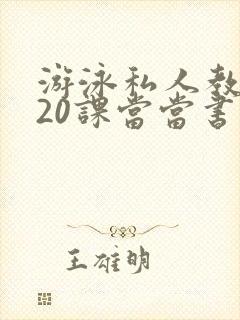 游泳私人教
20課當當書
王雄明